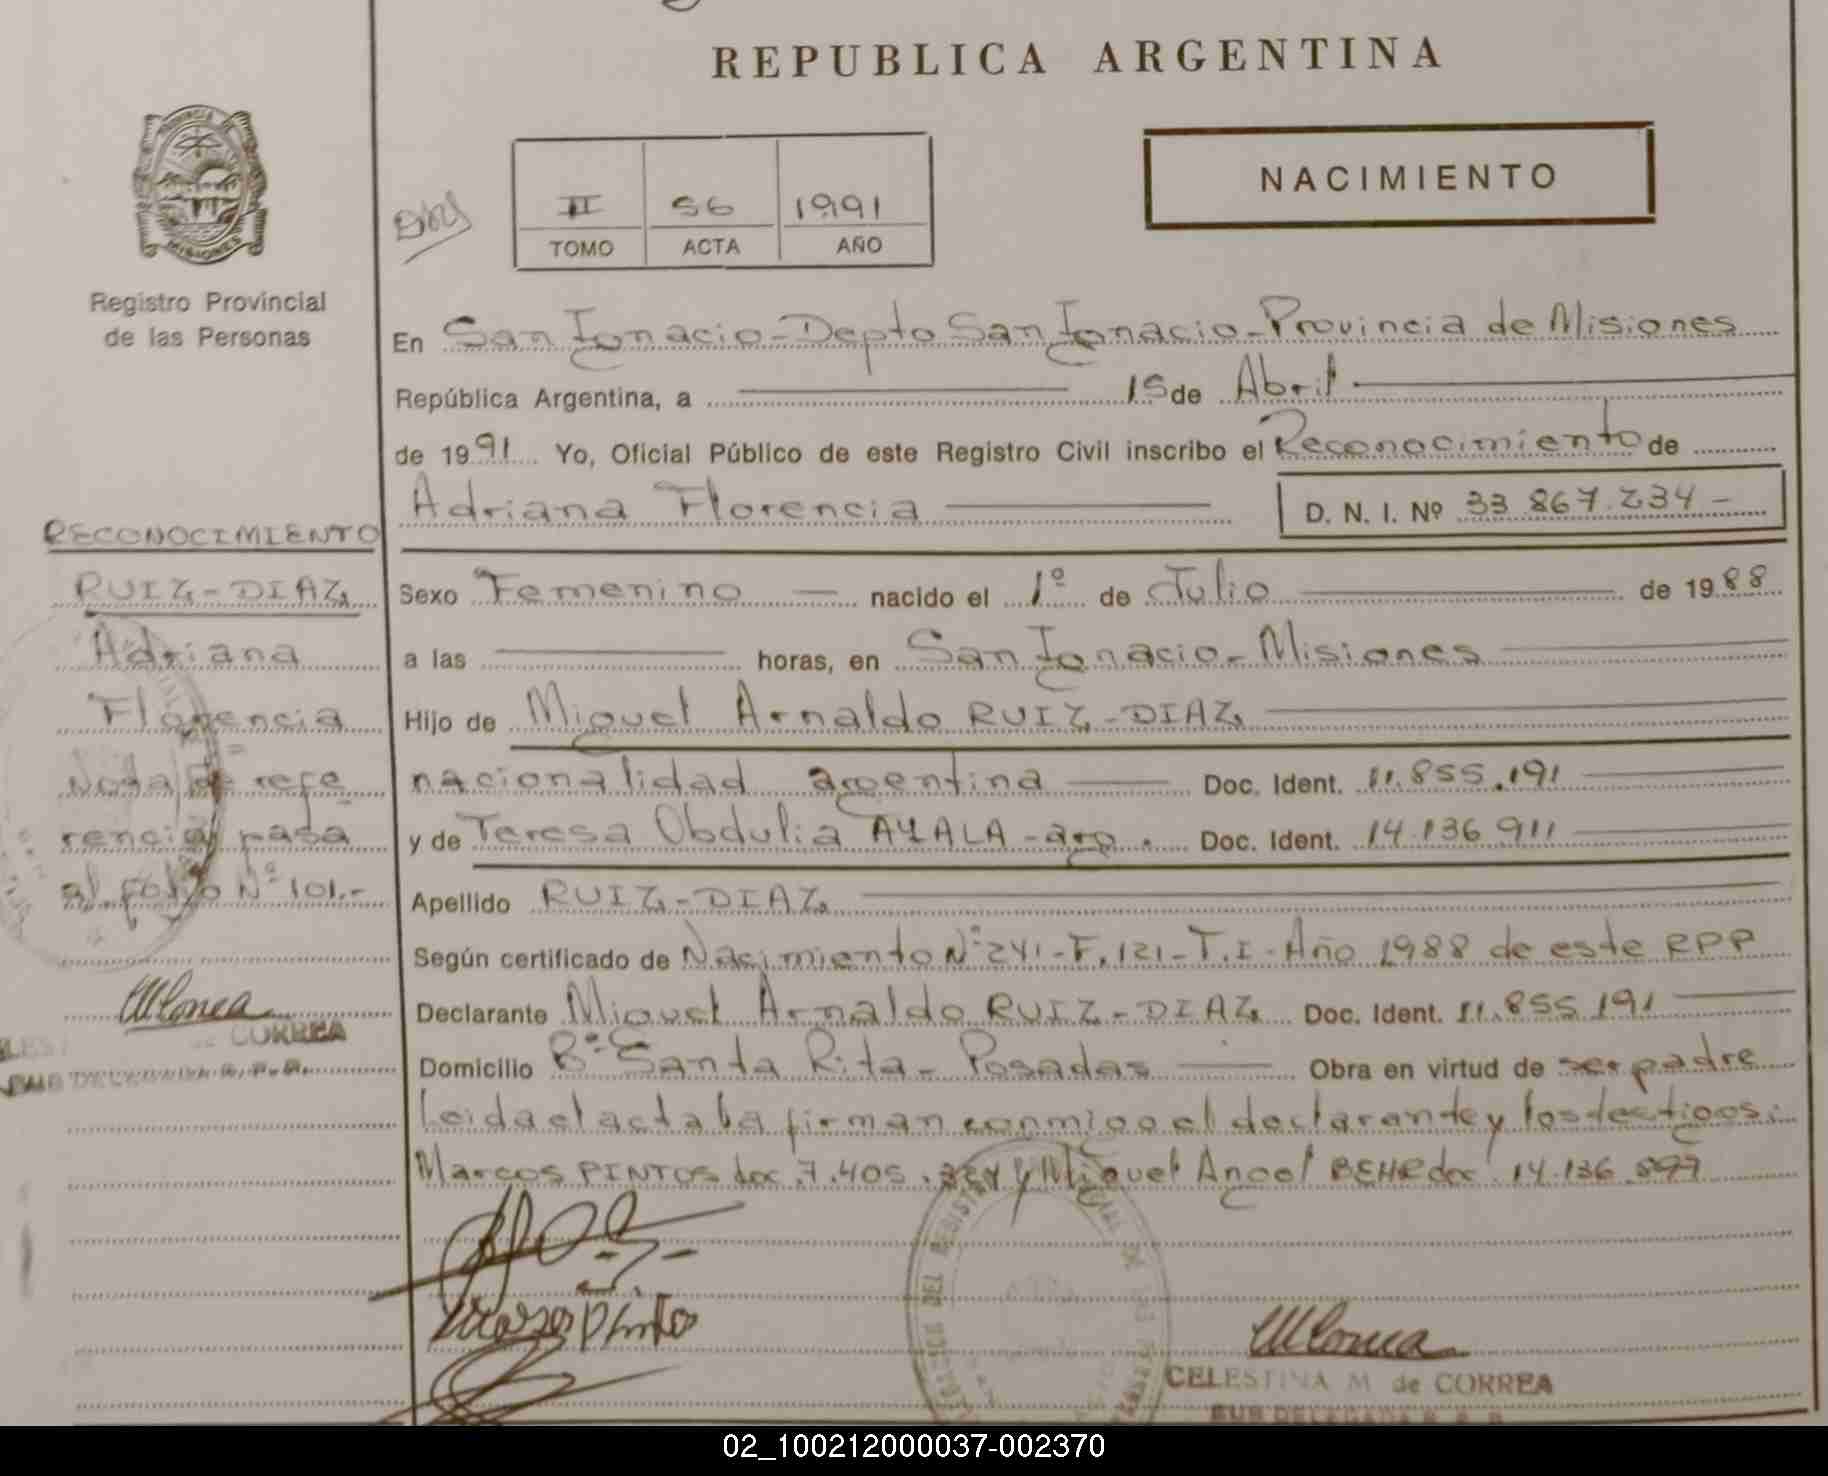 REPUBLICA ARGENTINA
PROVINCIA DE
MISIONES
Registro Provincial
de las Personas
II 56 1991
TOMO ACTA AÑO
NACIMIENTO
En San Ignacio - Depto San Ignacio - Provincia de Misiones
República Argentina, a 15 de Abril
de 1991 Yo, Oficial Público de este Registro Civil inscribo el Reconocimiento de
Adriana Florencia D. N. I. Nº 33 867.234 -
Sexo Femenino nacido el 1º de Julio de 1988
a las horas, en San Ignacio - Misiones
Hijo de Miguel Arnaldo RUIZ - DIAZ
nacionalidad argentina Doc. Ident. 11.855.191
y de Teresa Obdulia AYALA - arg. Doc. Ident. 14.136 911
Apellido RUIZ - DIAZ
Según certificado de Nacimiento Nº 241 - F. 121 - T. I - Año 1988 de este RPP
Declarante Miguel Arnaldo RUIZ - DIAZ Doc. Ident. 11.855 191
Domicilio Bº Santa Rita - Posadas Obra en virtud de ser padre
Leida el acta la firman conmigo el declarante y los testigos:
Marcos PINTOS doc. 7.405. y Miguel Angel BEHR doc. 14.136 897
RECONOCIMIENTO
RUIZ - DIAZ
Adriana
Florencia
Nota de refe
rencia pasa
al folio Nº 101.-
CORREA
SUB DELEGADA R. P. P.
Marcos Pintos
CELESTINA M de CORREA
SUB DELEGADA
02_100212000037-002370